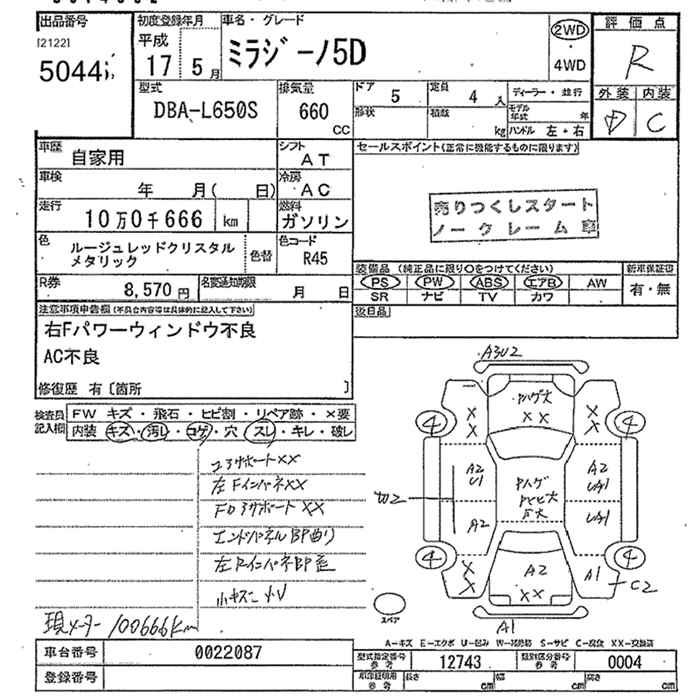 出品番号
[2122]
初度登録年月
平成
17 5月
車名・グレード
ミラジーノ5D
2WD
・
4WD
評価点
R
外装 内装
D C
型式
DBA-L650S
排気量
660
CC
ドア
5
定員
4 人
形状
積載
kg
ディーラー・並行
モデル年式 年
ハンドル 左・右
車歴
自家用
シフト
AT
車検
年 月( 日)
冷房
AC
走行
10万0千666 km
燃料
ガソリン
色
ルージュレッドクリスタル
メタリック
色替
色コード
R45
R券
8,570円
名変通知期限
月 日
セールスポイント(正常に機能するものに限ります)
売りつくしスタート
ノークレーム車
装備品 (純正品に限り○をつけてください)
PS PW ABS エアB AW
SR ナビ TV カワ
新車保証書
有・無
後日品
注意事項申告欄(不具合内容等は具体的に記入して下さい)
右Fパワーウィンドウ不良
AC不良
修復歴 有〔箇所 〕
検査員
記入欄
FW キズ・飛石・ヒビ割・リペア跡・×要
内装 キズ・汚レ・コゲ・穴・スレ・キレ・破レ
コアサポートXX
左FインパネXX
エンドパネルBP曲り
現メーター 100666km
A3U2
XX
XX
XX
4
4
4
4
A2
U1
A2
A2
UA1
UA1
A2
XX
XX
A1
C2
A1
スペア
A-キズ E-エクボ U-凹み W-補修跡 S-サビ C-腐食 XX-交換済
車台番号
0022087
登録番号
型式指定番号
参考
12743
類別区分番号
参考
0004
長さ cm
幅 cm
高さ cm